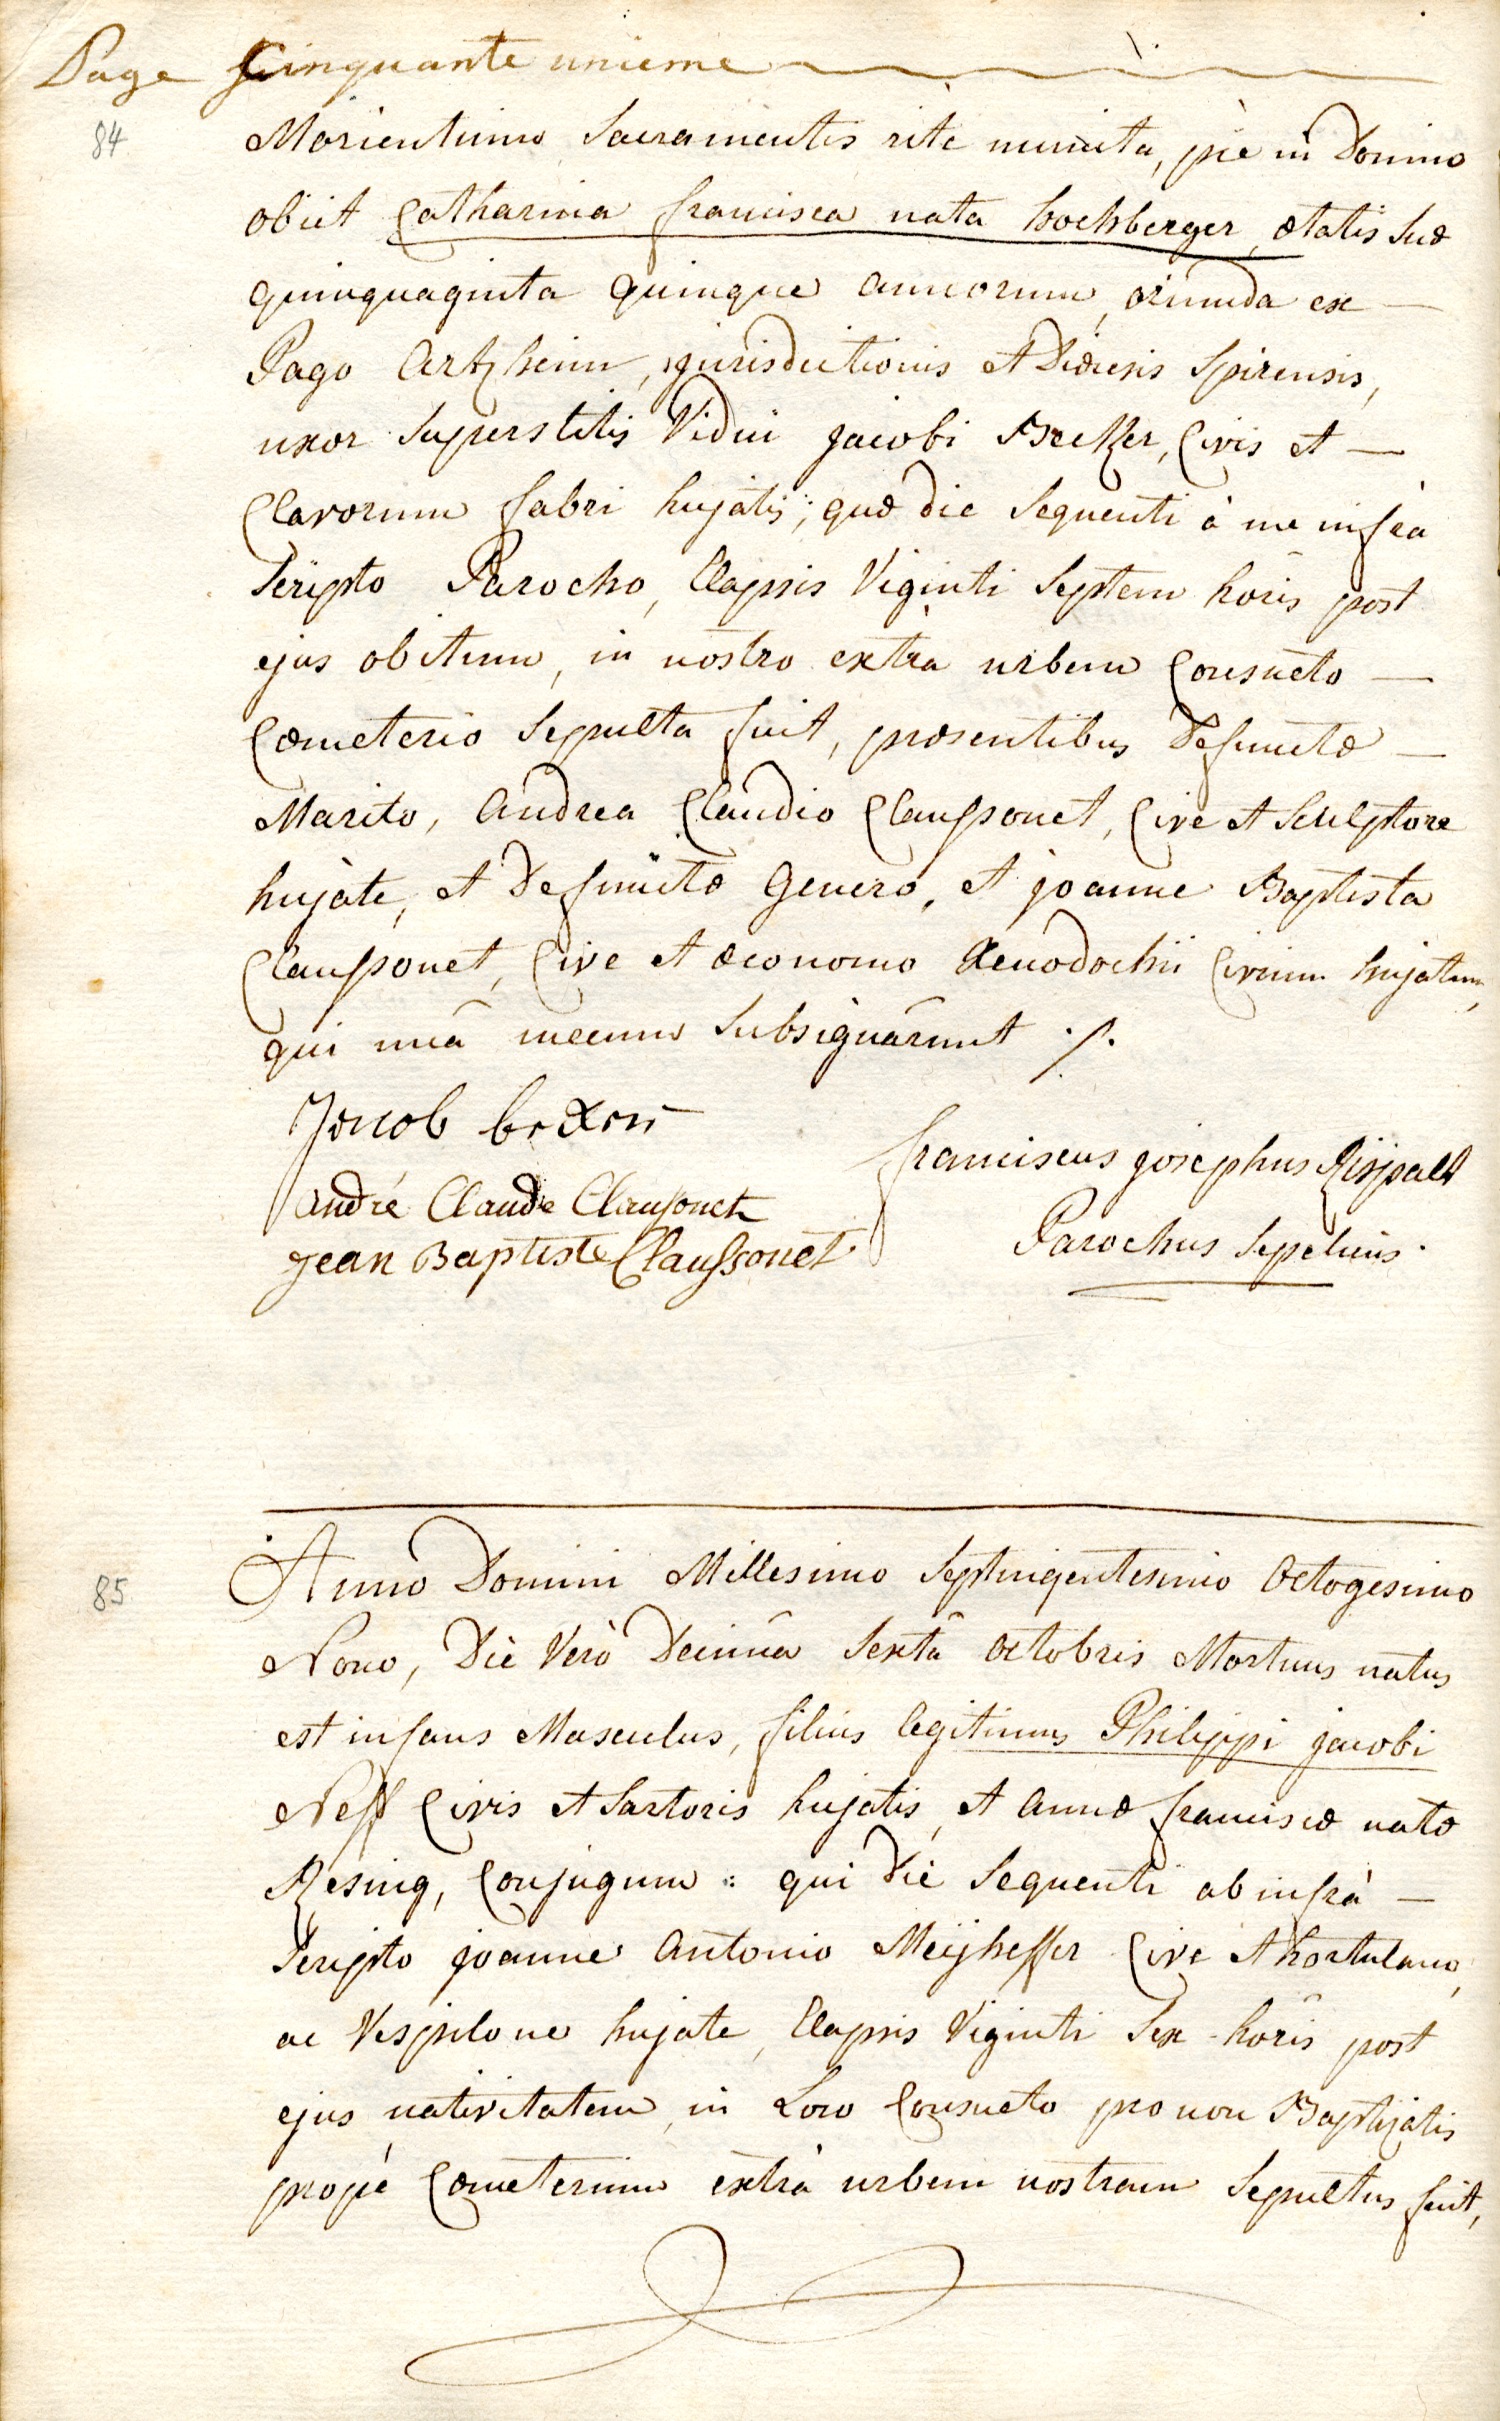 Page Cinquante unieme
84
Morientium Sacramentis ritè munita, piè in Domino
obiit Catharina francisca nata hochberger, ætatis Suæ
quinquaginta quinque annorum, oriunda ex —
Pago Artzheim, jurisdictionis et Diœcesis Spirensis,
uxor Superstitis Vidui jacobi Becker, Civis et —
Clavorum fabri hujatis; quæ die Sequenti à me infrà
Scripto Parocho, Elapsis Viginti Septem horis post
ejus obitum, in nostro extrà urbem Consueto —
Cœmeterio Sepulta fuit, præsentibus Defunctæ —
Marito, Andrea Claudio Claussonet, Cive et Sculptore
hujate, et Defunctæ Genero, et joanne Baptista
Claussonet, Cive et œconomo Xenodochii Civium hujatum,
qui unà mecum Subsignârunt ./.
Jacob
franciscus josephus
André Claude Clausonet
Parochus Sepeliens.
Jean Baptiste Claussonet
85
Anno Domini Millesimo Septingentesimo Octogesimo
Nono, Die Verò Decimâ Sextâ octobris Mortuus natus
est infans Masculus, filius legitimus Philippi jacobi
Neff Civis et Sartoris hujatis, et annæ franciscæ natæ
Resing, Conjugum: qui die Sequenti ab infrà —
Scripto joanne Antonio Meÿheffer Cive et hortulano,
ac Vespilone hujate, Elapsis Viginti Sex horis post
ejus nativitatem, in Loco Consueto pro non Baptizatis
propè Cœmeterium extrà urbem nostram Sepultus fuit,